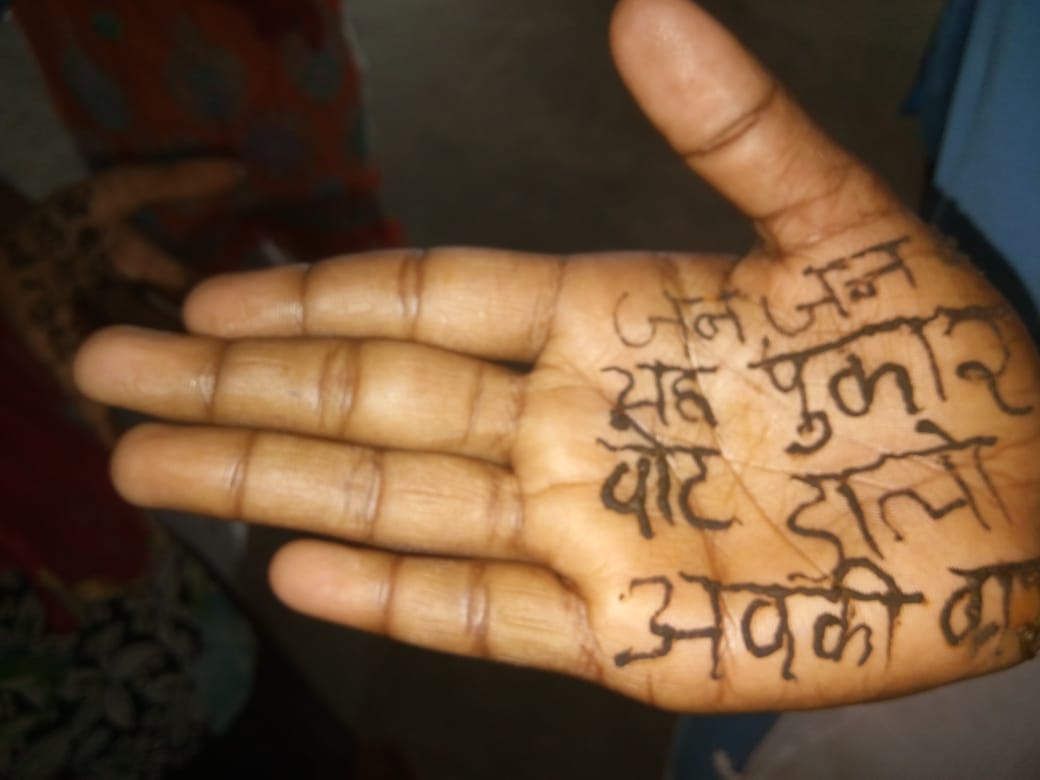 जन जन
यह पुकार
वोट डालो
अबकी बा